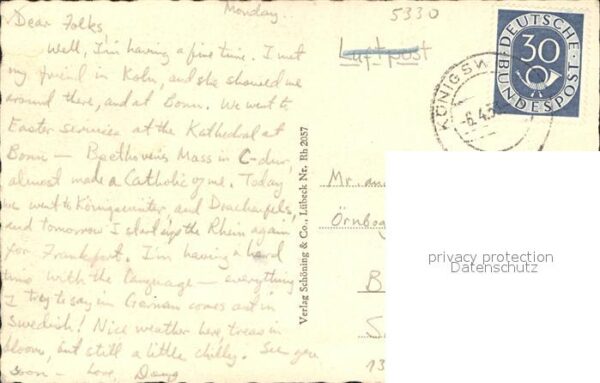 Monday.
5330
Dear Folks,
Well, I'm having a fine time. I met
my friend in Koln, and she showed me
around there, and at Bonn. We went to
Easter services at the Kathedral at
Bonn — Beethovens Mass in C-dur,
almost made a Catholic of me. Today
we went to Königswinter, and Drachenfels,
and tomorrow I start up the Rhein again
for Frankfurt. I'm having a hard
time with the language — everything
I try to say in German comes out in
Swedish! Nice weather here, trees in
bloom, but still a little chilly. See you
soon — Love, Doug
Luftpost
Verlag Schöning & Co., Lübeck Nr. Rh 2057
DEUTSCHE
BUNDESPOST
30
KÖNIGSW
-6.4.5
Mr. and
Örnbog
B
S
13
privacy protection
Datenschutz